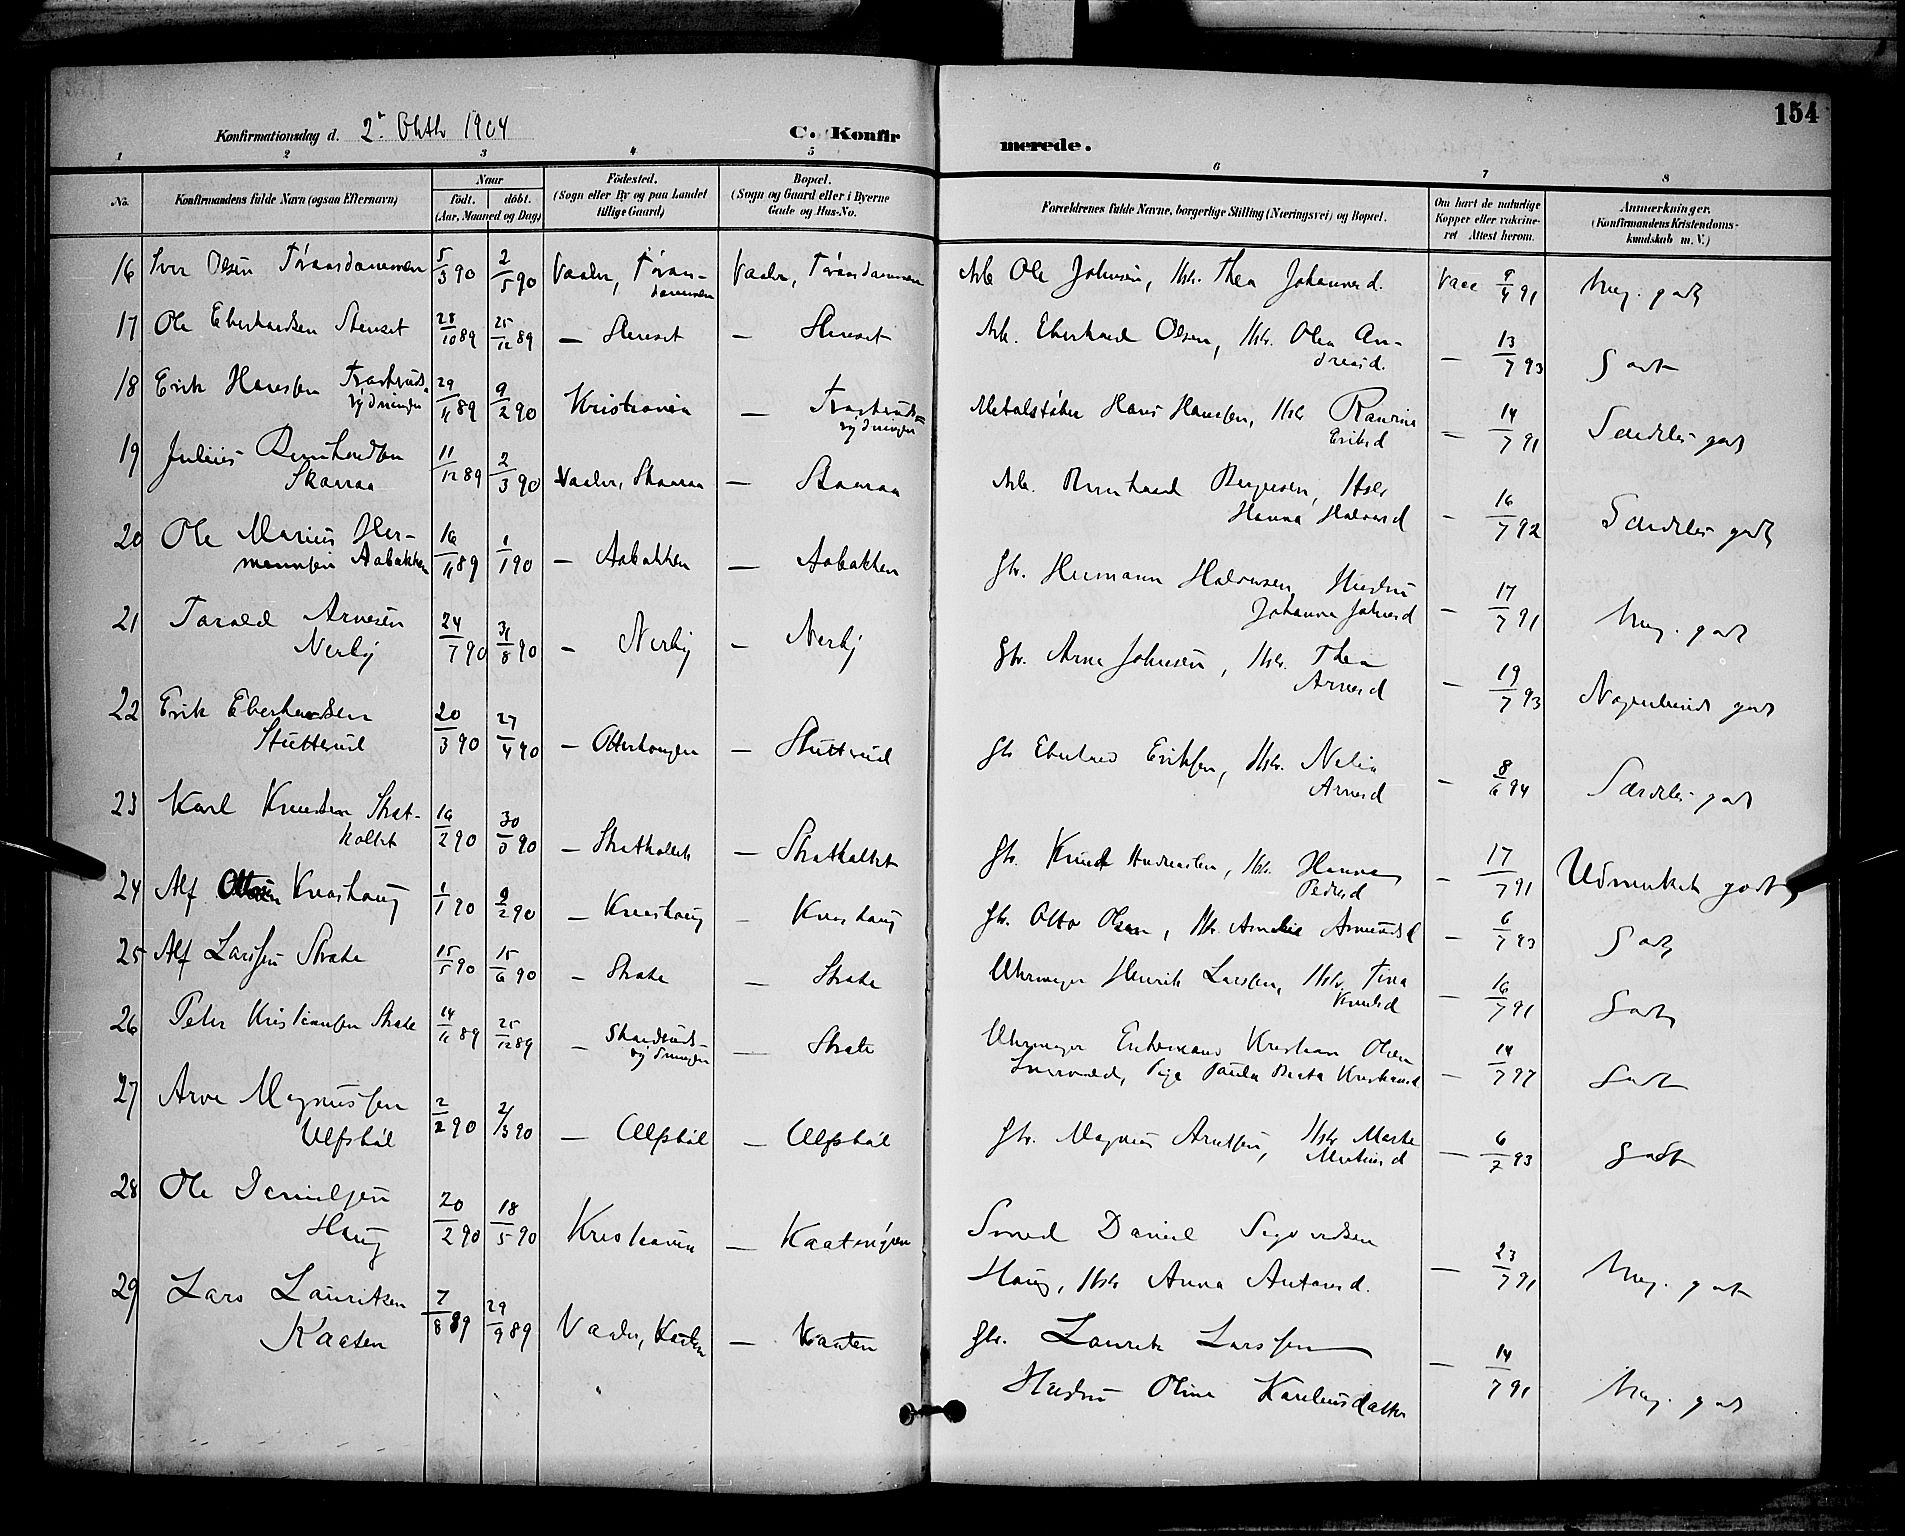 154
Konfirmationsdag d. 2. Oktb 1904
C. Konfirmerede.
1 2 3 4 5 6 7 8
No.
Konfirmandens fulde Navn (ogsaa Efternavn)
Naar
født. døbt.
(Aar, Maaned og Dag)
Fødested.
(Sogn eller By og paa Landet
tillige Gaard)
Bopæl.
(Sogn og Gaard eller i Byerne
Gade og Hus-No.
Forældrenes fulde Navne, borgerlige Stilling (Næringsvei) og Bopæl.
Om havt de naturlige
Kopper eller vakcine-
ret Attest herom.
Anmærkninger.
(Konfirmandens Kristendoms-
kundskab m. V.)
16 Iver Olsen 5/3 90 2/5 90 Vaaler, Arb. Ole Johnsen, Hstr. Thea Johannesd. Vacc 9/4 91 Meg. godt
17 Ole Eberhardsen Stenset 28/10 89 25/12 89 — Stenset — Stenset Arb. Eberhard Olsen, Hstr. Olea An-
dreasd. — 13/7 93 Godt
18 Erik Hansen 29/11 89 9/2 90 Kristiania — Hans Hansen, Hstr.
Eriksd — 14/7 91 Særdeles godt
19 Julius Bernhardsen
Skaaraa 11/12 89 2/3 90 Vaaler, Skaaraa — Skaaraa Arb. Bernhard Bergersen, Hstr
Hanna Halvorsd — 16/7 92 Særdeles godt
20 Ole Marius Her-
mansen Aabakken 16/11 89 1/1 90 — Aabakken — Aabakken Gbr. Hermann Halvorsen Hustru
Johanne Johnsd — 17/7 91 Meg. godt
21 Tarald Arnesen
Nerby 24/7 90 31/8 90 — Nerby — Nerby Gbr. Arne Johnsen, Hstr. Thea
Arnesd — 19/7 93 Nogenlunde godt
22 Erik Eberhardsen
Stutterud 20/3 90 27/4 90 — — Stutterud Gbr Eberhard Eriksen, Hstr.
Arnesd — 8/6 94 Særdeles godt
23 Karl Knudsen Skat-
koltet 16/2 90 — Skatkoltet — Skatkoltet Gbr. Knud Andreasen, Hstr. Hanna
Pedersd — 17/7 91 Udmerket godt
24 Alf Ottosen Knashaug 1/1 90 9/2 90 — Knashaug — Knashaug Gbr. Otto Olsen, Hstr. Amalie Amundsd — 6/7 93 Godt
25 Alf Larssen Strate 15/5 90 15/6 90 — Strate — Strate Uhrmager Henrik Larssen, Hstr. Tina
Knudsd — 16/7 91 Godt
26 Peter Kristiansen Strate 14/11 89 25/12 89 — — Strate Enkemand Kristian Olsen
Pige Paula Beata Kristiansd — 14/7 97 Godt
27 Arve Magnussen
Ulfsbøl 2/2 90 2/3 90 — Ulfsbøl — Ulfsbøl Gbr. Magnus Arnesen, Hstr Marte
Martinsd — 6/7 93 Godt
28 Ole Danielsen
Haug 20/2 90 18/5 90 Kristiania — Smed Daniel Sigvardsen
Haug, Hstr Anna Antonsd. — 23/7 91 Meg. godt
29 Lars Lauritsen
Kaaten 7/8 89 29/9 89 Vaaler, Kaaten — Kaaten Gbr. Laurits Larssen
Hustru Oline Kareliusdatter — 14/7 91 Meg. godt